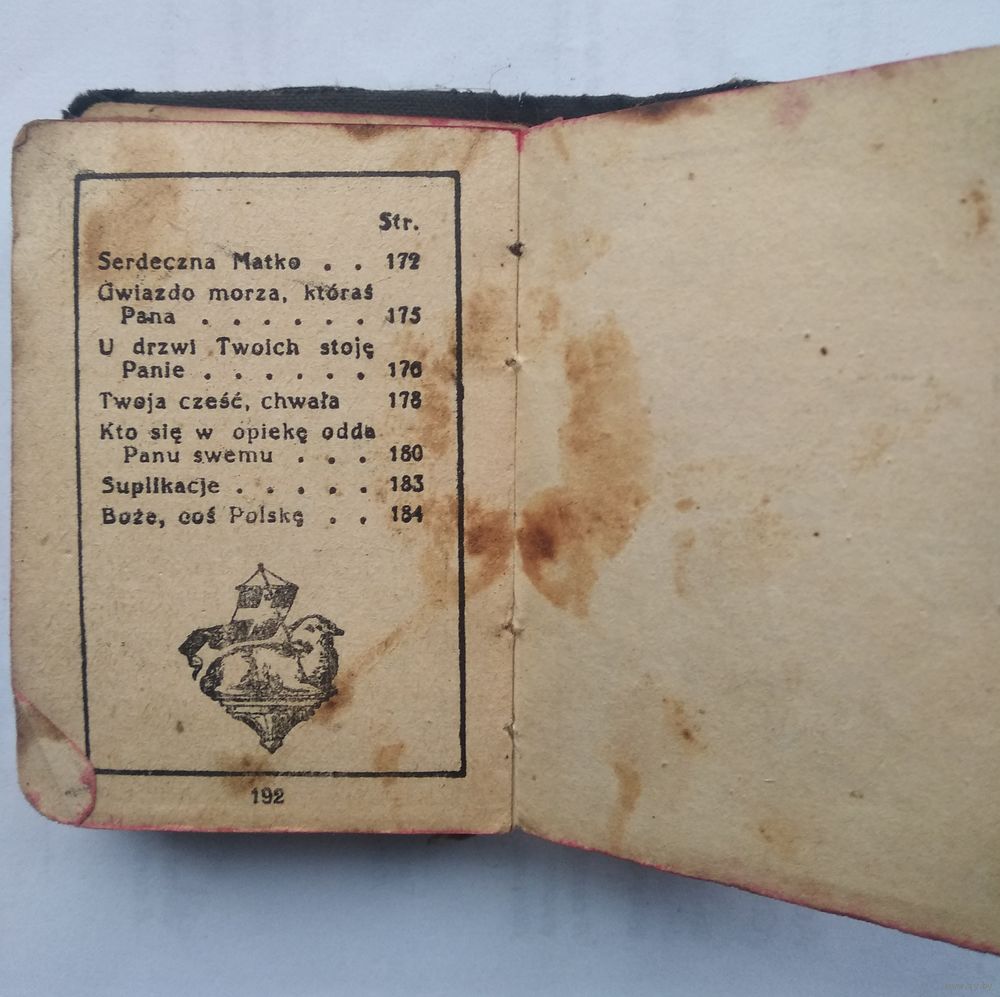 Str.
Serdeczna Matko . . 172
Gwiazdo morza, któraś
Pana . . . . . . 175
U drzwi Twoich stoję
Panie . . . . . . 176
Twoja cześć, chwała 178
Kto się w opiekę odda
Panu swemu . . . 180
Suplikacje . . . . . 183
Boże, coś Polskę . . 184
192